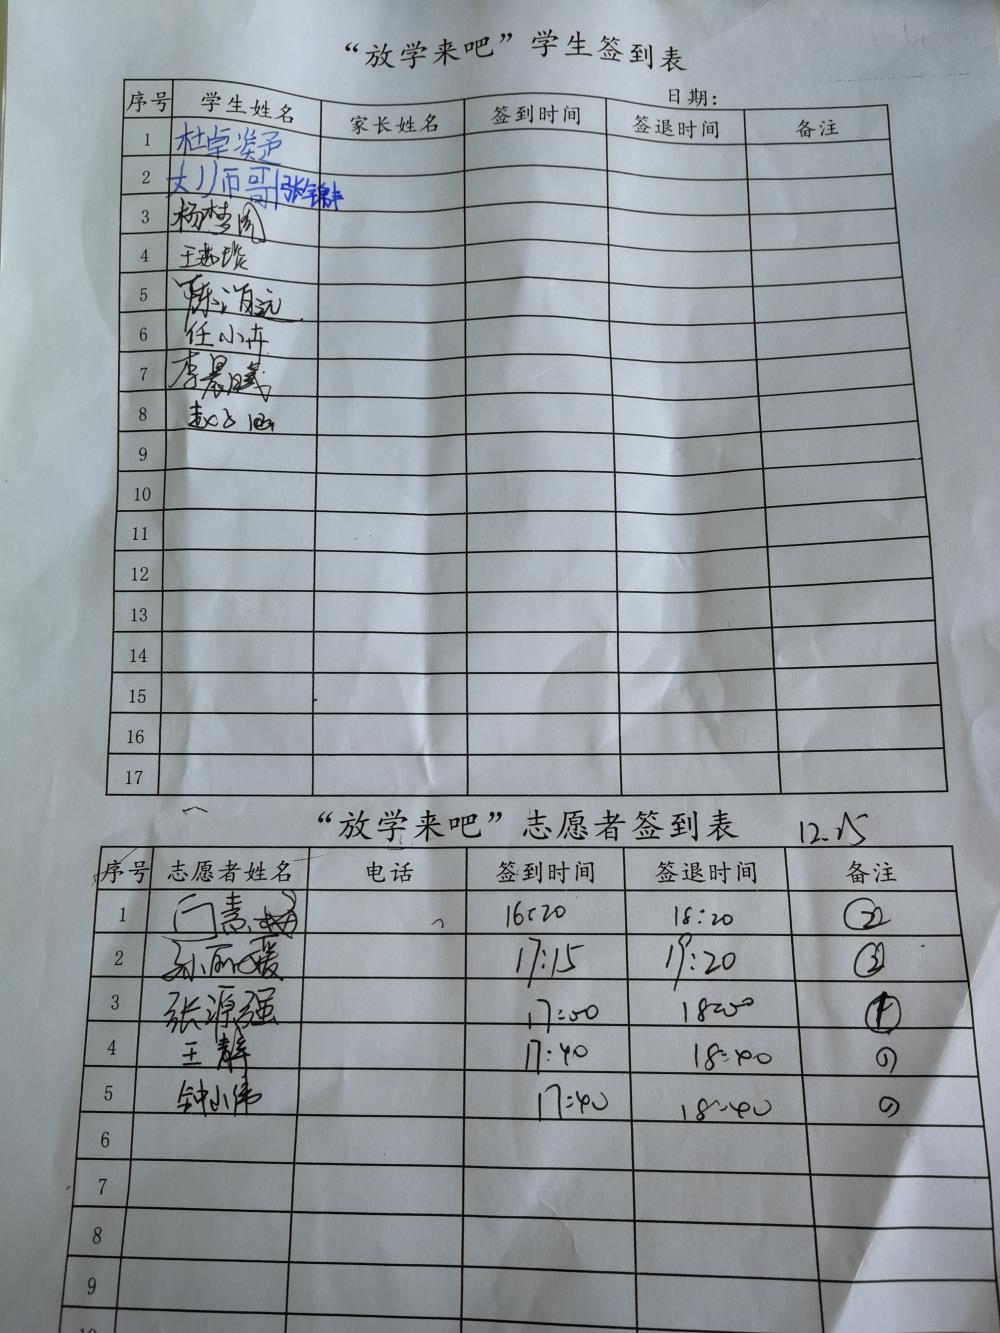 “放学来吧”学生签到表
日期：
序号 学生姓名 家长姓名 签到时间 签退时间 备注
1 杜卓
2 张锦丰
3 杨梦凤
4 王
5 陈
6 任小卉
7 李晨曦
8 赵子涵
9
10
11
12
13
14
15
16
17
“放学来吧”志愿者签到表 12.25
序号 志愿者姓名 电话 签到时间 签退时间 备注
1 16:20 18:20 ②
2 孙丽媛 17:15 19:20 ②
3 张源强 17:00 18:00 ①
4 王静 17:40 18:40
5 钟小伟 17:40 18:40
6
7
8
9
10